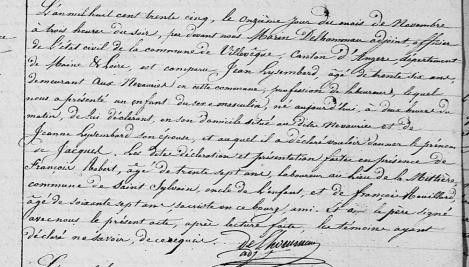 L'an mil huit cent trente cinq, le onzième jour du mois de Novembre
à trois heures du soir, par devant nous Marin Delhommeau adjoint, officier
de l'état civil de la commune de Villevêque, Canton d'Angers département
de Maine & Loire, est comparu Jean Lusembard, âgé de trente six ans,
demeurant aux en cette commune, profession de laboureur, lequel
nous a présenté un enfant du sexe masculin, né aujourd'hui, à deux heures du
matin, de lui déclarant, en son domicile sis au dite et de
Jeanne Lusembard son épouse, et auquel il a déclaré vouloir donner le prénom
de Jacques. Les dites déclaration et présentation faites en présence de
François Robert, âgé de trente sept ans, laboureur au lieu de la
commune de Saint Sylvain, oncle de l'enfant, et de François Rouillard,
âgé de soixante sept ans, sacriste en ce bourg, ami. et le père signé
avec nous le présent acte, après lecture faite, les témoins ayant
déclaré ne savoir, de ce requis.
Delhommeau
adj